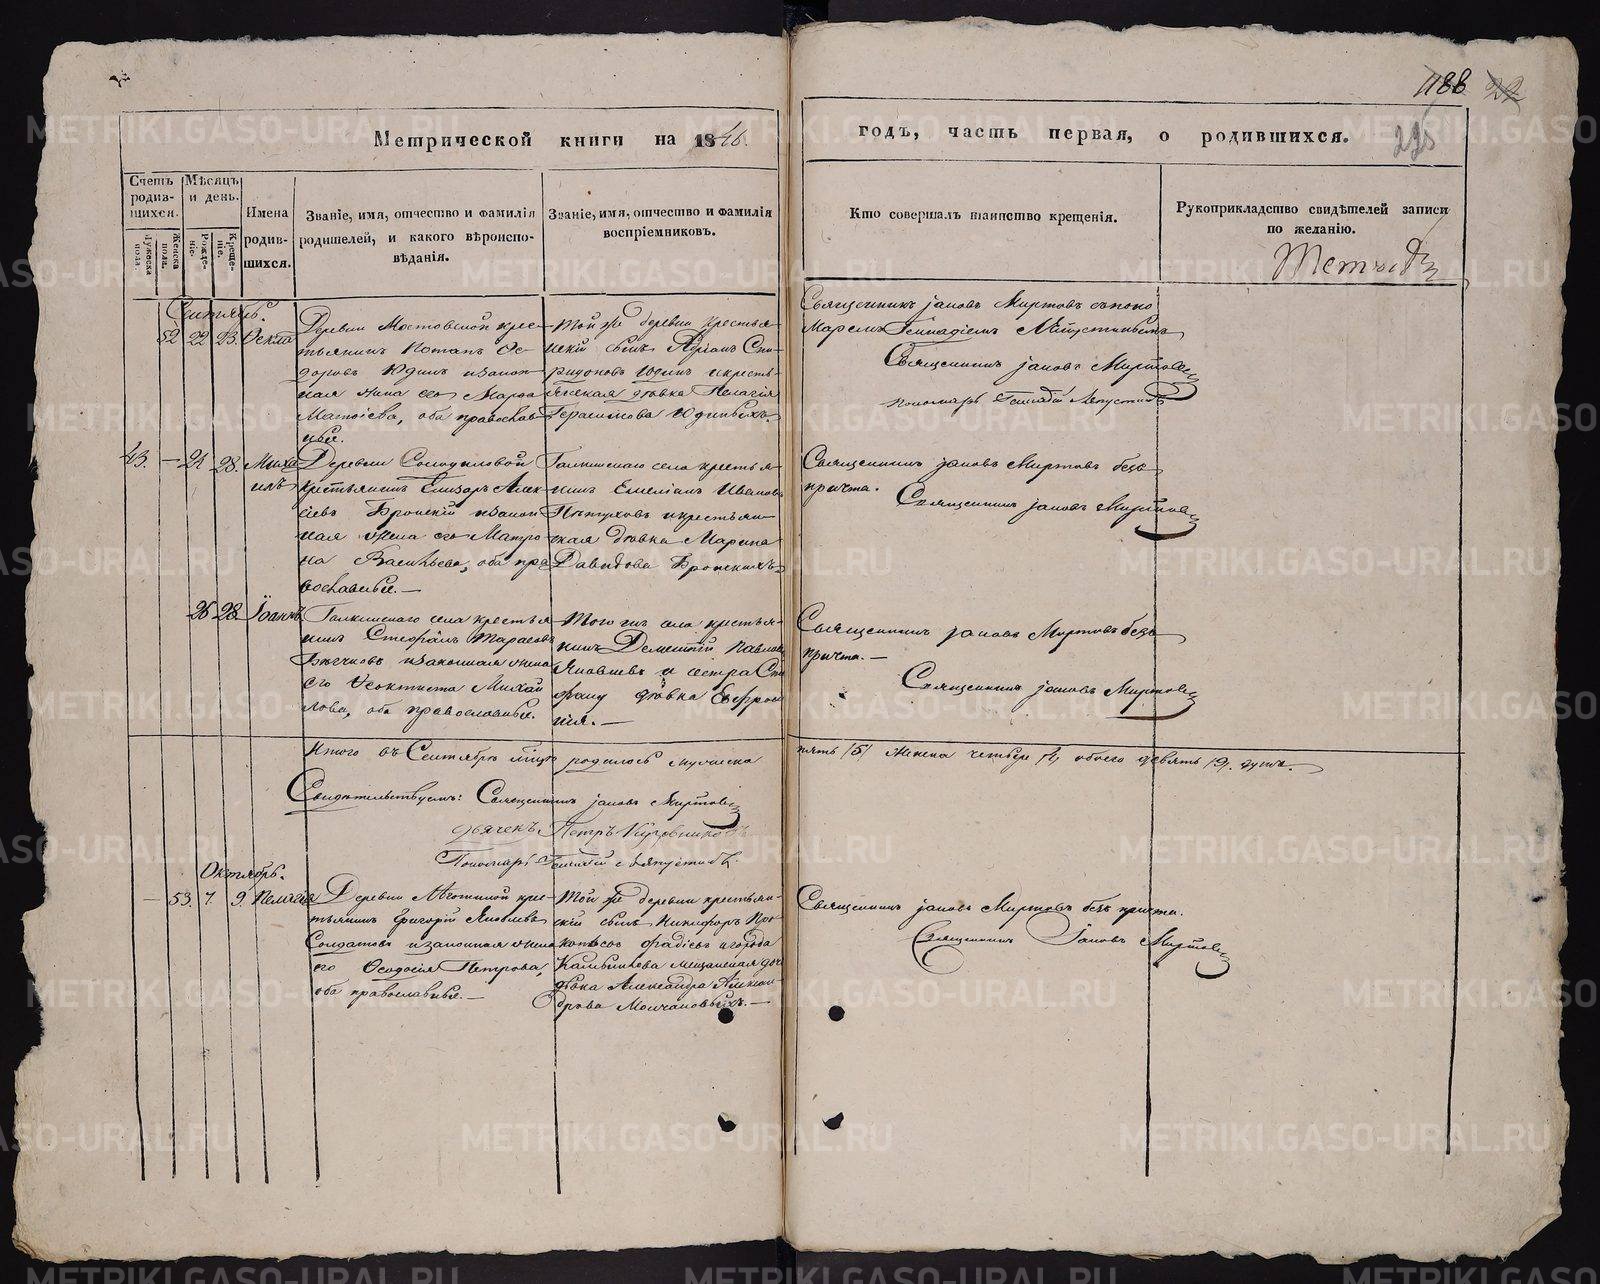 1188
Метрической книги на 1840.
годъ, часть первая, о родившихся.
295
Счетъ родив-шихся.
Мужеска пола.
Женска пола.
Мѣсяцъ и день.
Рожде-нія.
Креще-нія.
Имена родив-шихся.
Званіе, имя, отчество и фамилія родителей, и какого вѣроиспо-вѣданія.
Званіе, имя, отчество и фамилія воспріемниковъ.
Кто совершалъ таинство крещенія.
Рукоприкладство свидѣтелей записи по желанію.
Сентябрь.
52 22 23 Ѳекла
Деревни Мостовской крес-
тьянинъ Потапъ Ѳе-
доровъ Юдинъ и закон-
ная жена его Марѳа
Матѳіева, оба православ-
ные.
Той же деревни крестья-
нскій сынъ Адріанъ Спи-
ридоновъ Юдинъ и кресть-
янская дѣвка Пелагія
Герасимова Юдиныхъ.
Священникъ Іаковъ Миртовъ съ поно-
маремъ Геннадіемъ
Священникъ Іаковъ Миртовъ
Пономарь Геннадій
43. — 24 28. Миха-
илъ
Деревни Солодиловой
крестьянинъ Елизаръ Алек-
сіевъ Бронскій и закон-
ная жена его Матро-
на Васильева, оба пра-
вославные. —
Галкинскаго села крестья-
нинъ Емеліанъ Ивановъ
Пѣтуховъ и крестьян-
ская дѣвка Марина
Давидова Бронскихъ.
Священникъ Іаковъ Миртовъ безъ
причта.
Священникъ Іаковъ Миртовъ
26 28. Іоаннъ
Галкинскаго села крестья-
нинъ Стефанъ Тарасовъ
Бычковъ и законная жена
его Ѳеоктиста Михай-
лова, оба православные.
Того же села крестья-
нинъ Дементій Павловъ
Яковлевъ и сестра Сте-
фану дѣвка Евфроси-
нія. —
Священникъ Іаковъ Миртовъ безъ
причта. —
Священникъ Іаковъ Миртовъ
Итого въ Сентябрѣ мцѣ родилось мужеска
пять /5/ женска четыре /4/ обоего девять /9/. душъ.
Свидѣтельствуемъ: Священникъ Іаковъ Миртовъ
дьячекъ Петръ
Пономарь Геннадій
Октябрь.
— 53. 7. 9. Пелагія
Деревни крес-
тьянинъ Григорій Яковлевъ
Солдатовъ и законная жена
его Ѳеодосія Петрова,
оба православные. —
Той же деревни крестьян-
скій сынъ Никифоръ Про-
копьевъ и города
Камышлова мѣщанская дочь
дѣвка Александра Алексан-
дрова Молчановыхъ. —
Священникъ Іаковъ Миртовъ безъ причта.
Священникъ Іаковъ Миртовъ
METRIKI.GASO-URAL.RU